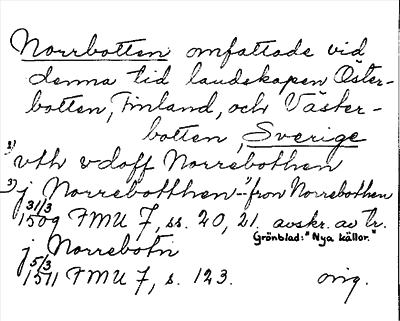 Norrbotten omfattade vid
denna tid landskapen Öster-
botten, Finland, och Väster-
botten, Sverige
2) vth vdoff Norrebothen
3) j Norrebotthen -"- fron Norrebothen
31/3
1509 FMU 7, ss. 20, 21. avskr. av tr.
Grönblad: "Nya källor."
j Norrebotn
5/3
1511 FMU 7, s. 123. orig.